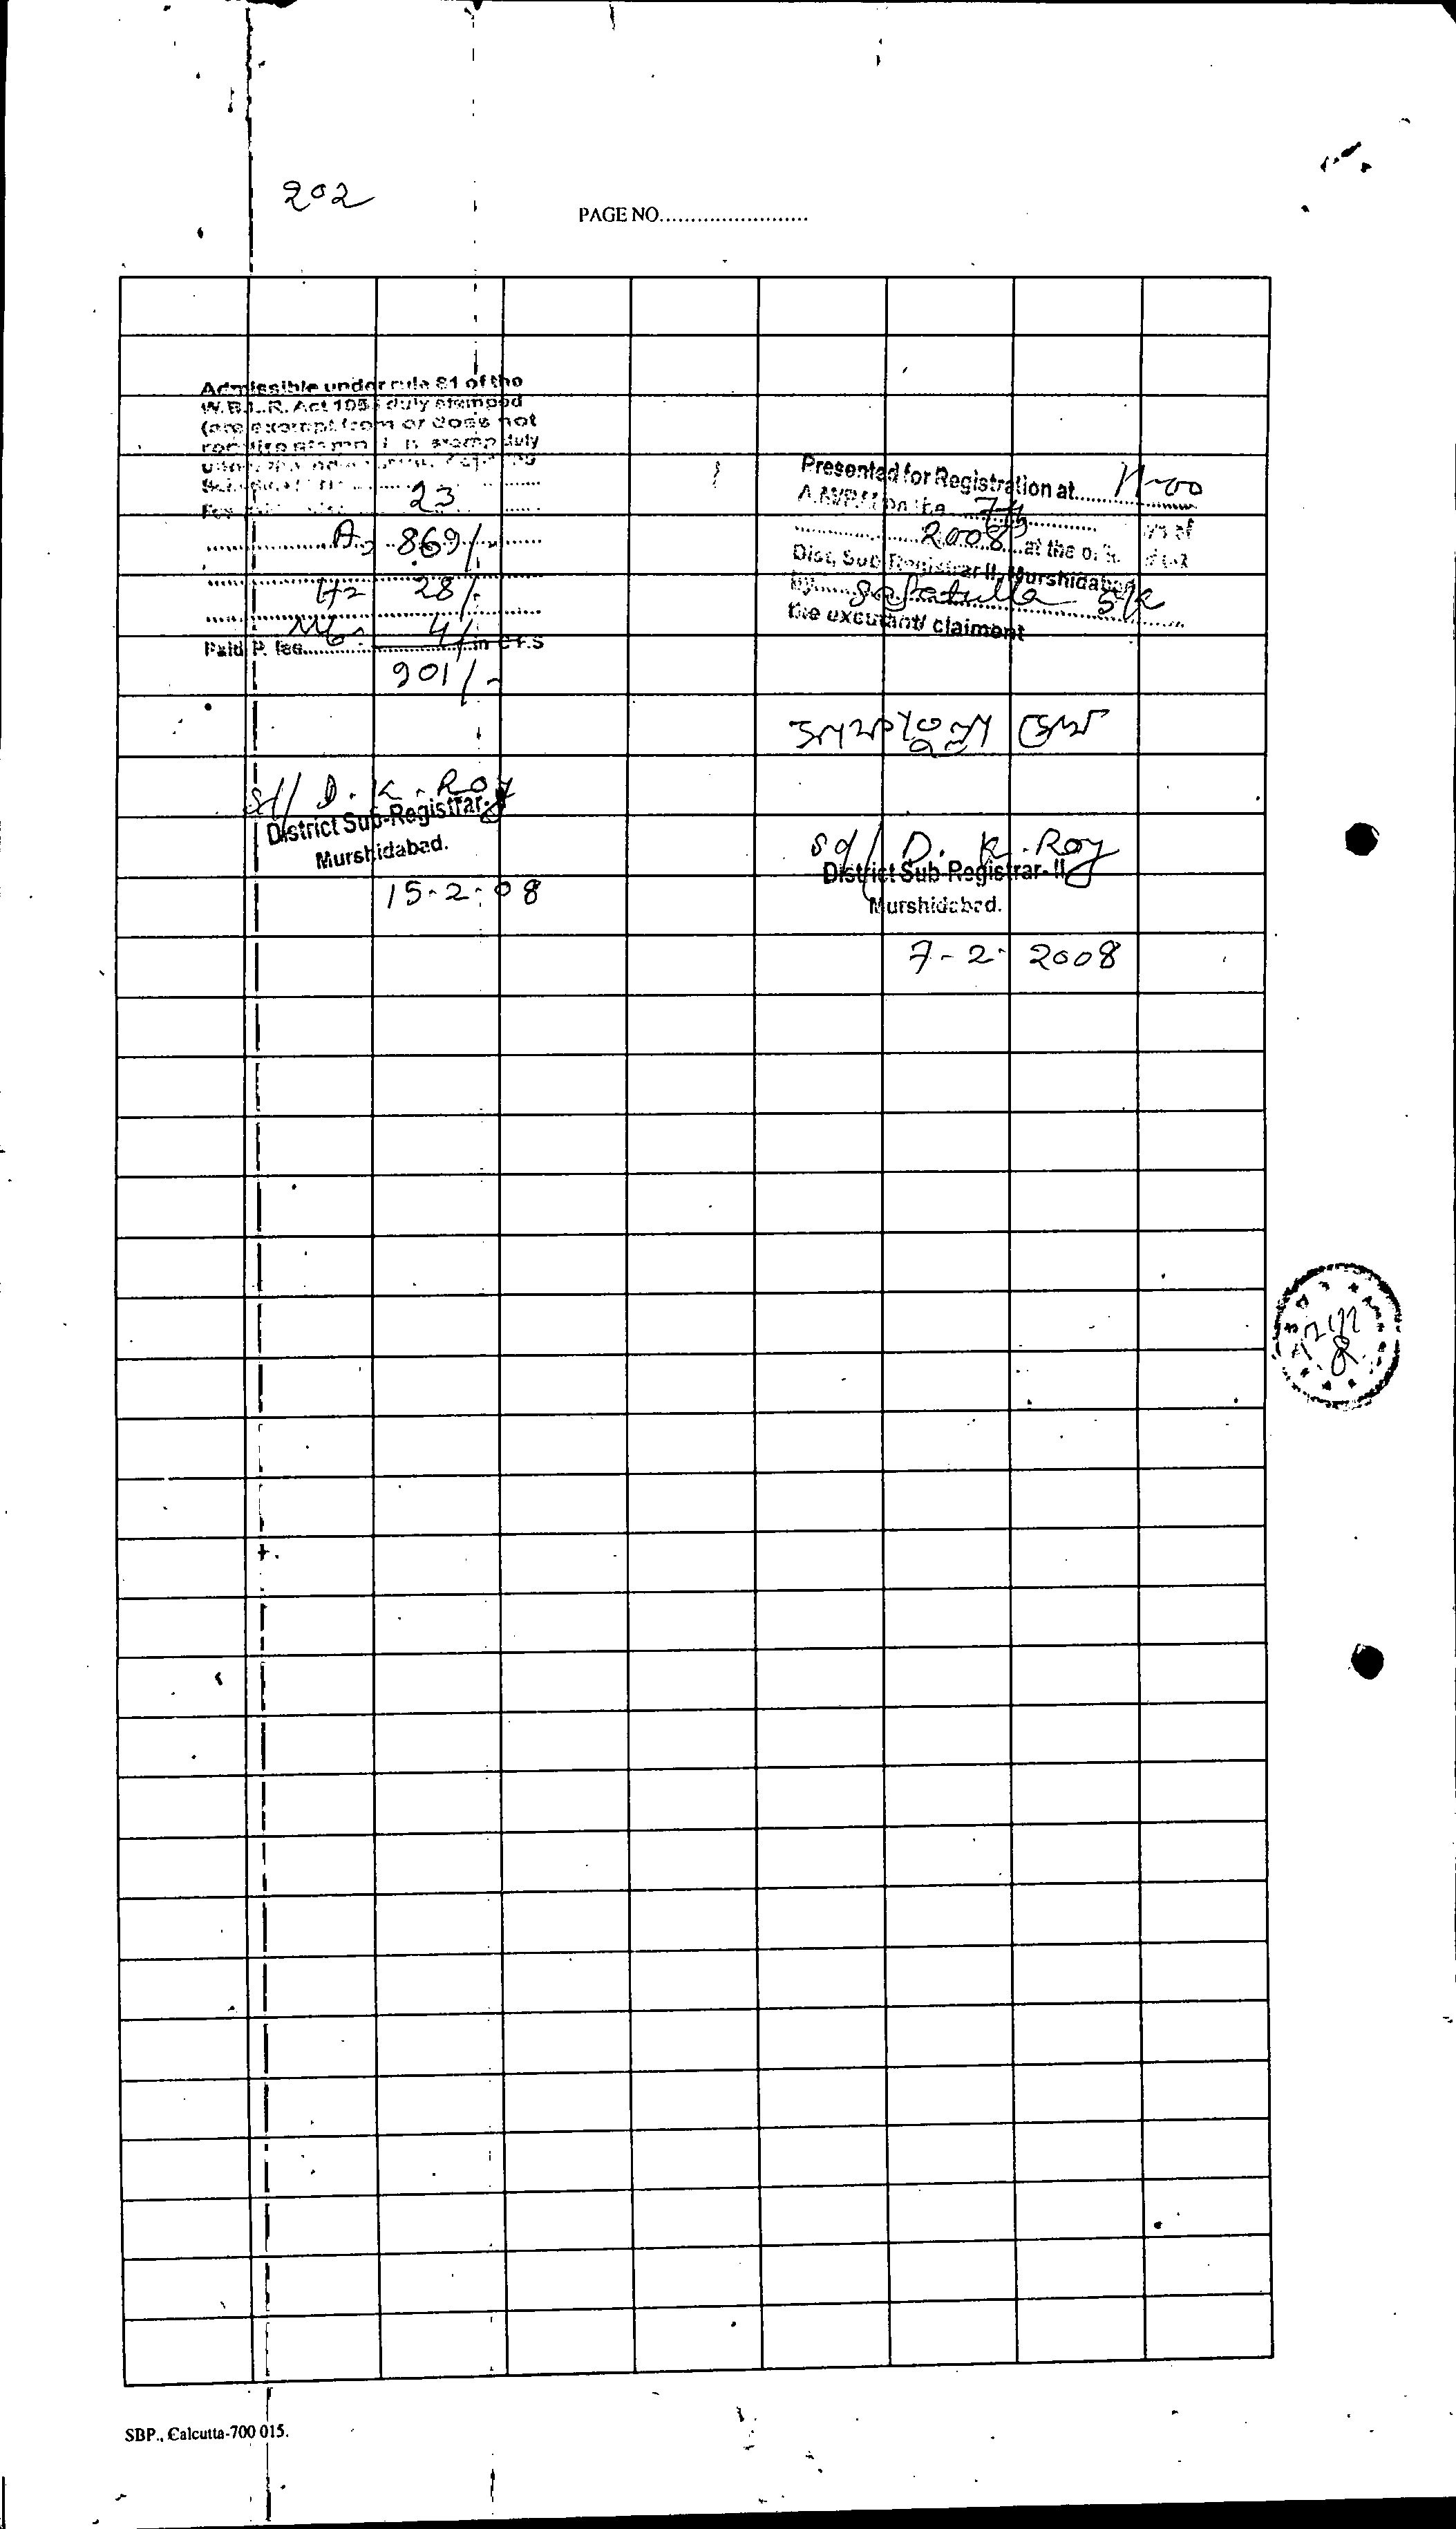 202
PAGE NO........................
Admissible under rule 81 of the
W.B.L.R. Act 195 duly stamped
(are exempt from or does not
require stamp duty
23
A= 869/-
H= 28/-
4/-
Paid P. fee in C.F.S
901/-
Sd/ D. K. Roy
District Sub-Registrar-
Murshidabad.
15-2-08
Presented for Registration at 11-00
A.M/P.M on the 7th
2008 at the
Dist, Sub Registrar II, Murshidabad
by Safatulla Sk
the executant/ claimant
সাফাতুল্লা সেখ
Sd/ D. K. Roy
District Sub-Registrar-II
Murshidabad.
7-2-2008
SBP., Calcutta-700 015.